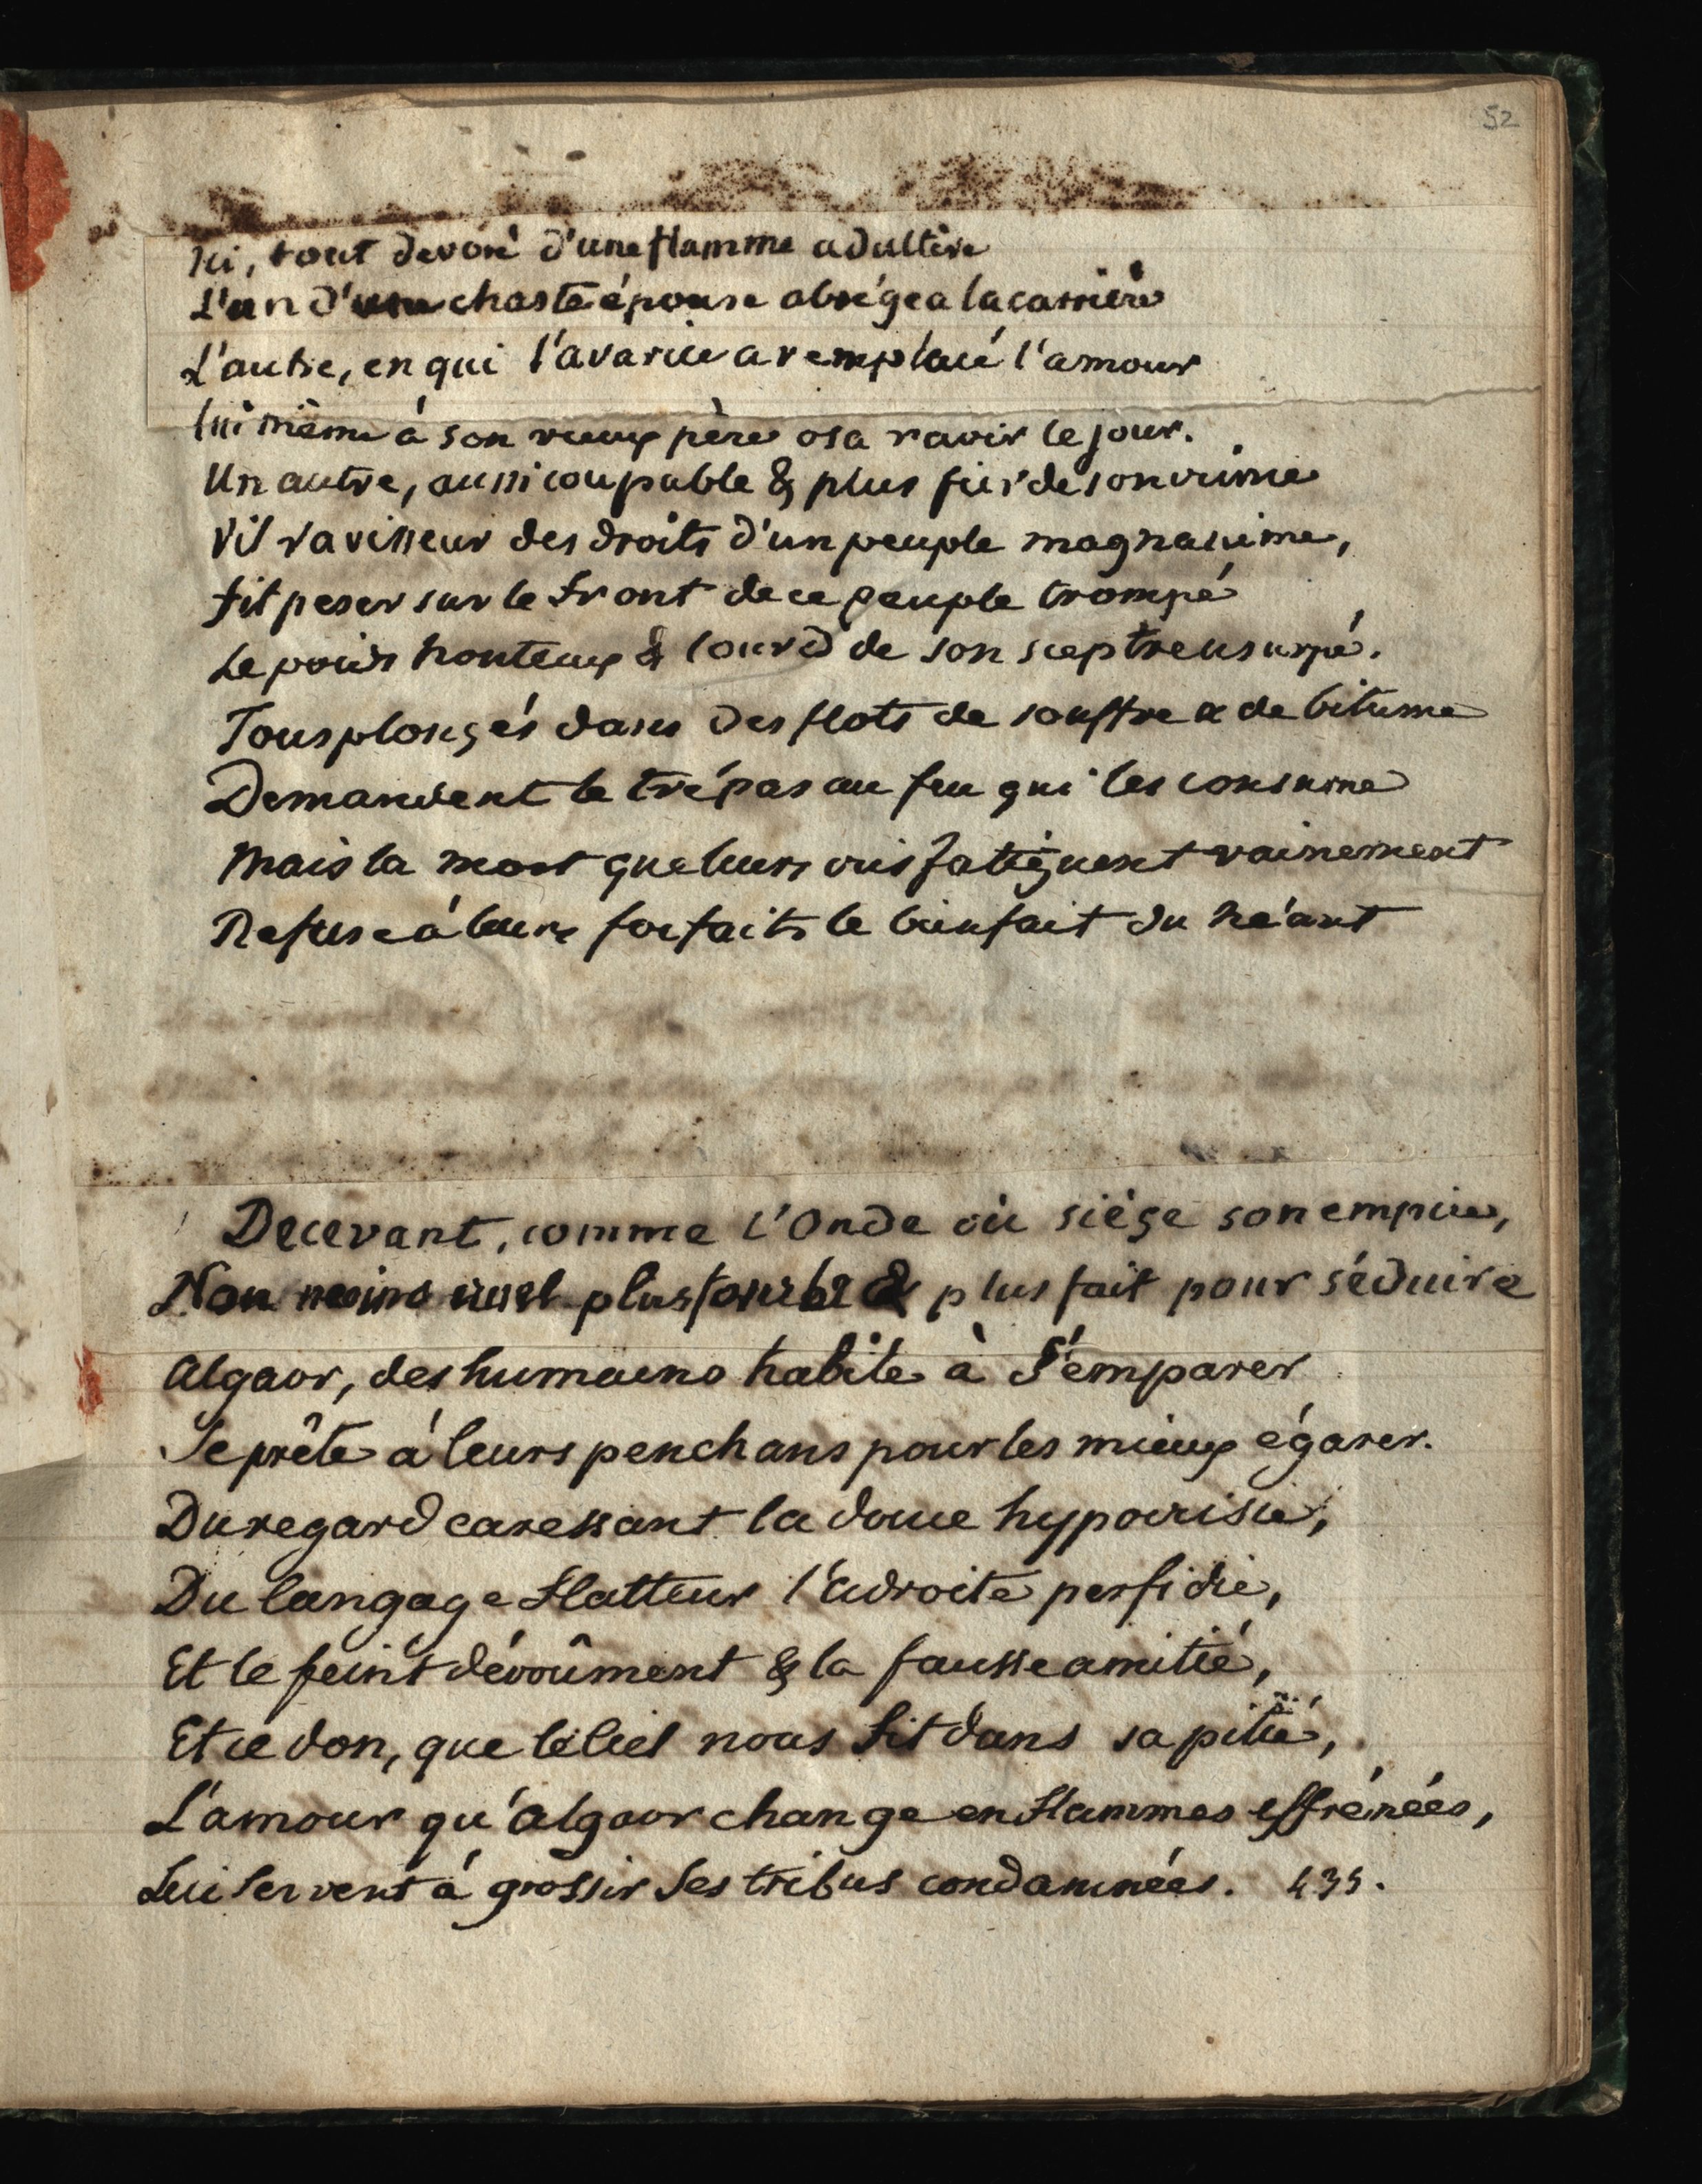 52
Ici, tout devoré d'une flamme adultère
L'un d'une chaste épouse abrégea la carrière
L'autre, en qui l'avarice a remplacé l'amour
lui même à son vieux père osa ravir le jour.
Un autre, aussi coupable & plus fier de son crime
Vil ravisseur des droits d'un peuple magnanime,
fit peser sur le front de ce peuple trompé
Le poids honteux & lourd de son sceptre usurpé.
Tous plongés dans des flots de souffre & de bitume
Demandent le trépas au feu qui les consume
Mais la mort que leurs cris fatiguent vainement
Refuse à leurs forfaits le bienfait du néant
Decevant, comme l'Onde où siége son empire,
Non moins cruel plus fourbe & plus fait pour séduire
Algaor, des humains habile à S'emparer
Se prête à leurs penchans pour les mieux égarer.
Du regard caressant la douce hypocrisie,
Du langage flatteur l'adroite perfidie,
Et le feint dévoûment & la fausse amitié,
Et ce don, que le Ciel nous fit dans sa pitié,
L'amour qu'Algaor change en flammes effrénées,
Lui Servent à grossir Ses tribus condamnées. 435.